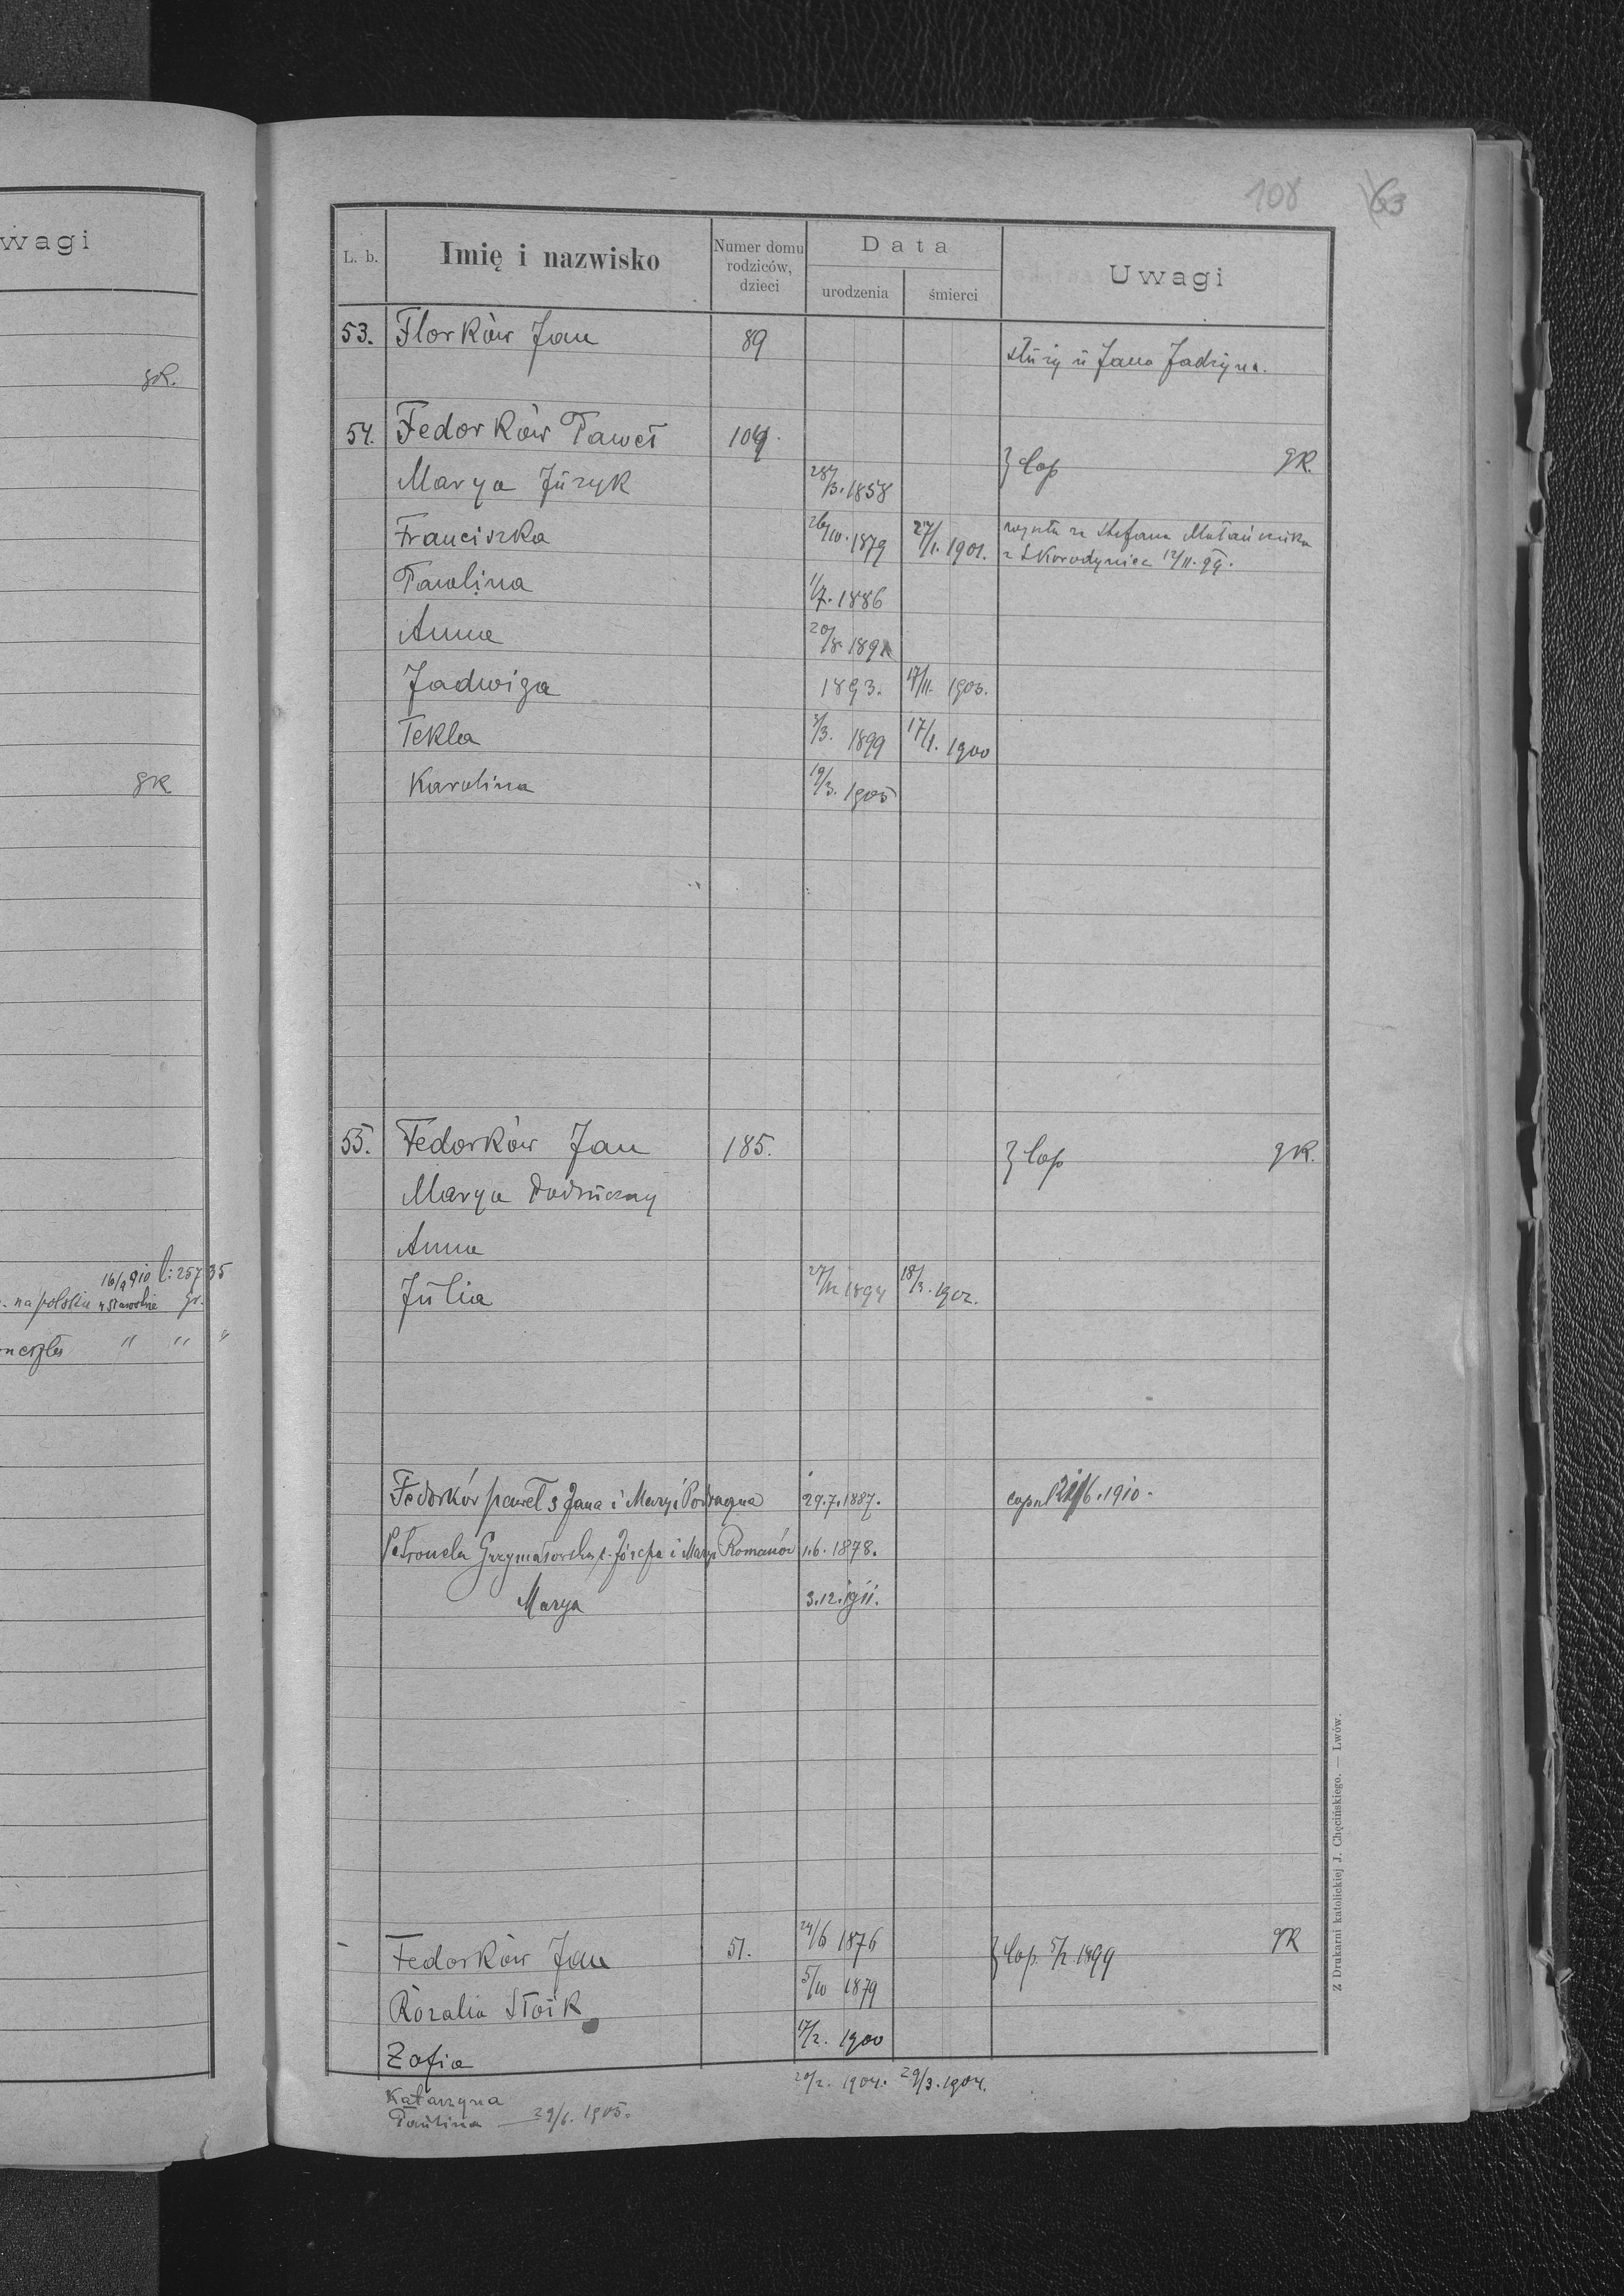 wagi
gR.
gR
16/9 910 l: 257 35
na polskie
" " "
108 63
L. b. Imię i nazwisko Numer domu rodziców, dzieci Data urodzenia śmierci Uwagi
53. Florków Jan 89
służy u Jana Jadzyna.
54. Fedorków Paweł 104.
} cop gR.
Marya Juzyk 28/3. 1858
Franciszka 26/10. 1879 27/1. 1901. wyszła za Stefana
z Skorodyniec 12/11. 99.
Paulina 1/7. 1886
Anna 20/8 189
Jadwiga 1893. 17/11. 1903.
Tekla 3/3. 1899 17/1. 1900
Karolina 19/3. 1905
55. Fedorków Jan 185. } cop gR.
Marya
Anna
Julia 27/12 1894 18/3. 1902.
Fedorków paweł s Jana i Maryi 29.7.1887. copul 6.1910.
Petronela Grzymałowska c. Józefa i Maryi Romanów 1.6.1878.
Marya 3.12.1911.
Fedorków Jan 51. 24/6 1876 } cop. 5/2 1899 gR
Rozalia Słoik 5/10 1879
Zofia 17/2. 1900
Katarzyna 20/2. 1904. 29/3. 1904.
Paulina — 29/6. 1905.
Z Drukarni katolickiej J. Chęcińskiego. — Lwów.